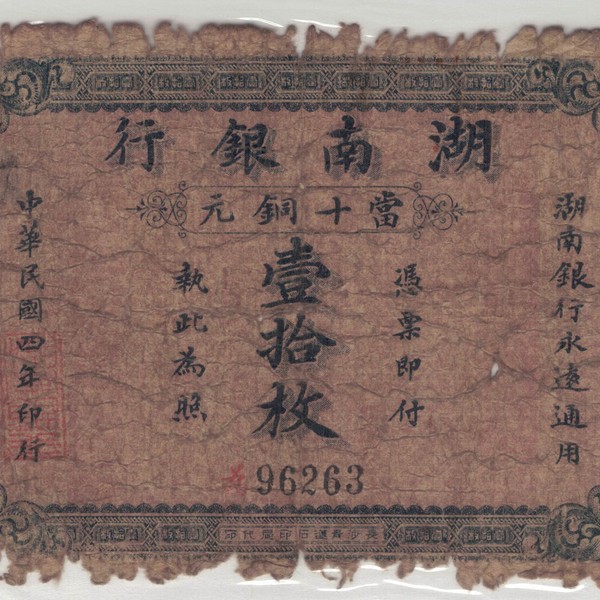 湖南銀行
當十銅元
湖南銀行永遠通用
憑票即付
壹拾枚
執此為照
中華民國四年印行
96263